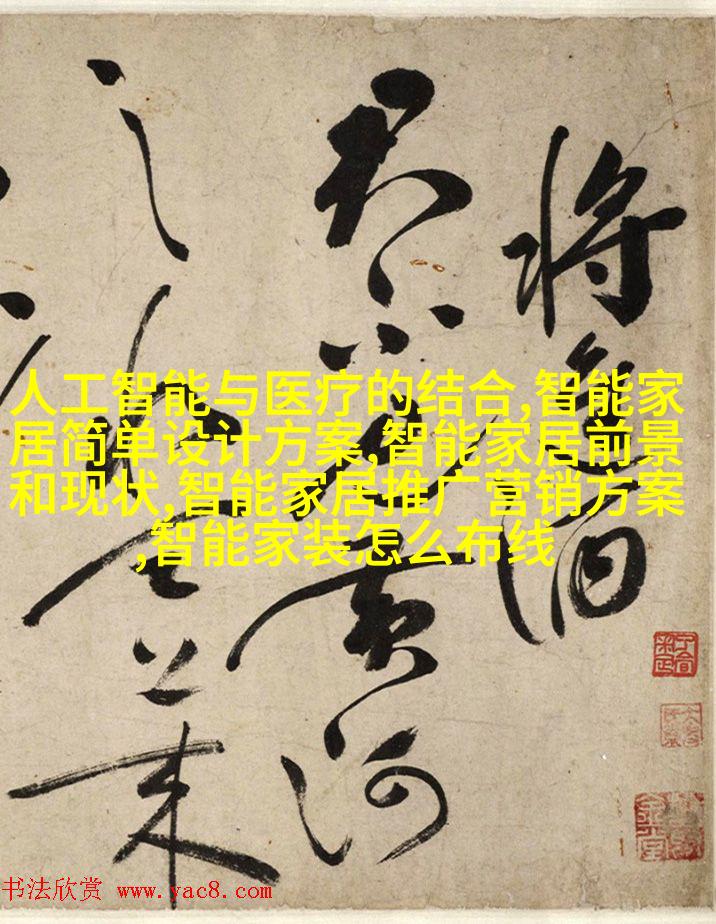 将進酒
君不見黄河
之水天上来
人工智能与医疗的结合,智能家
居简单设计方案,智能家居前景
和现状,智能家居推广营销方案
,智能家装怎么布线
书法欣赏 www.yac8.com